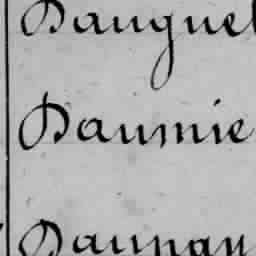 Dauguel
Daumie
Daunan